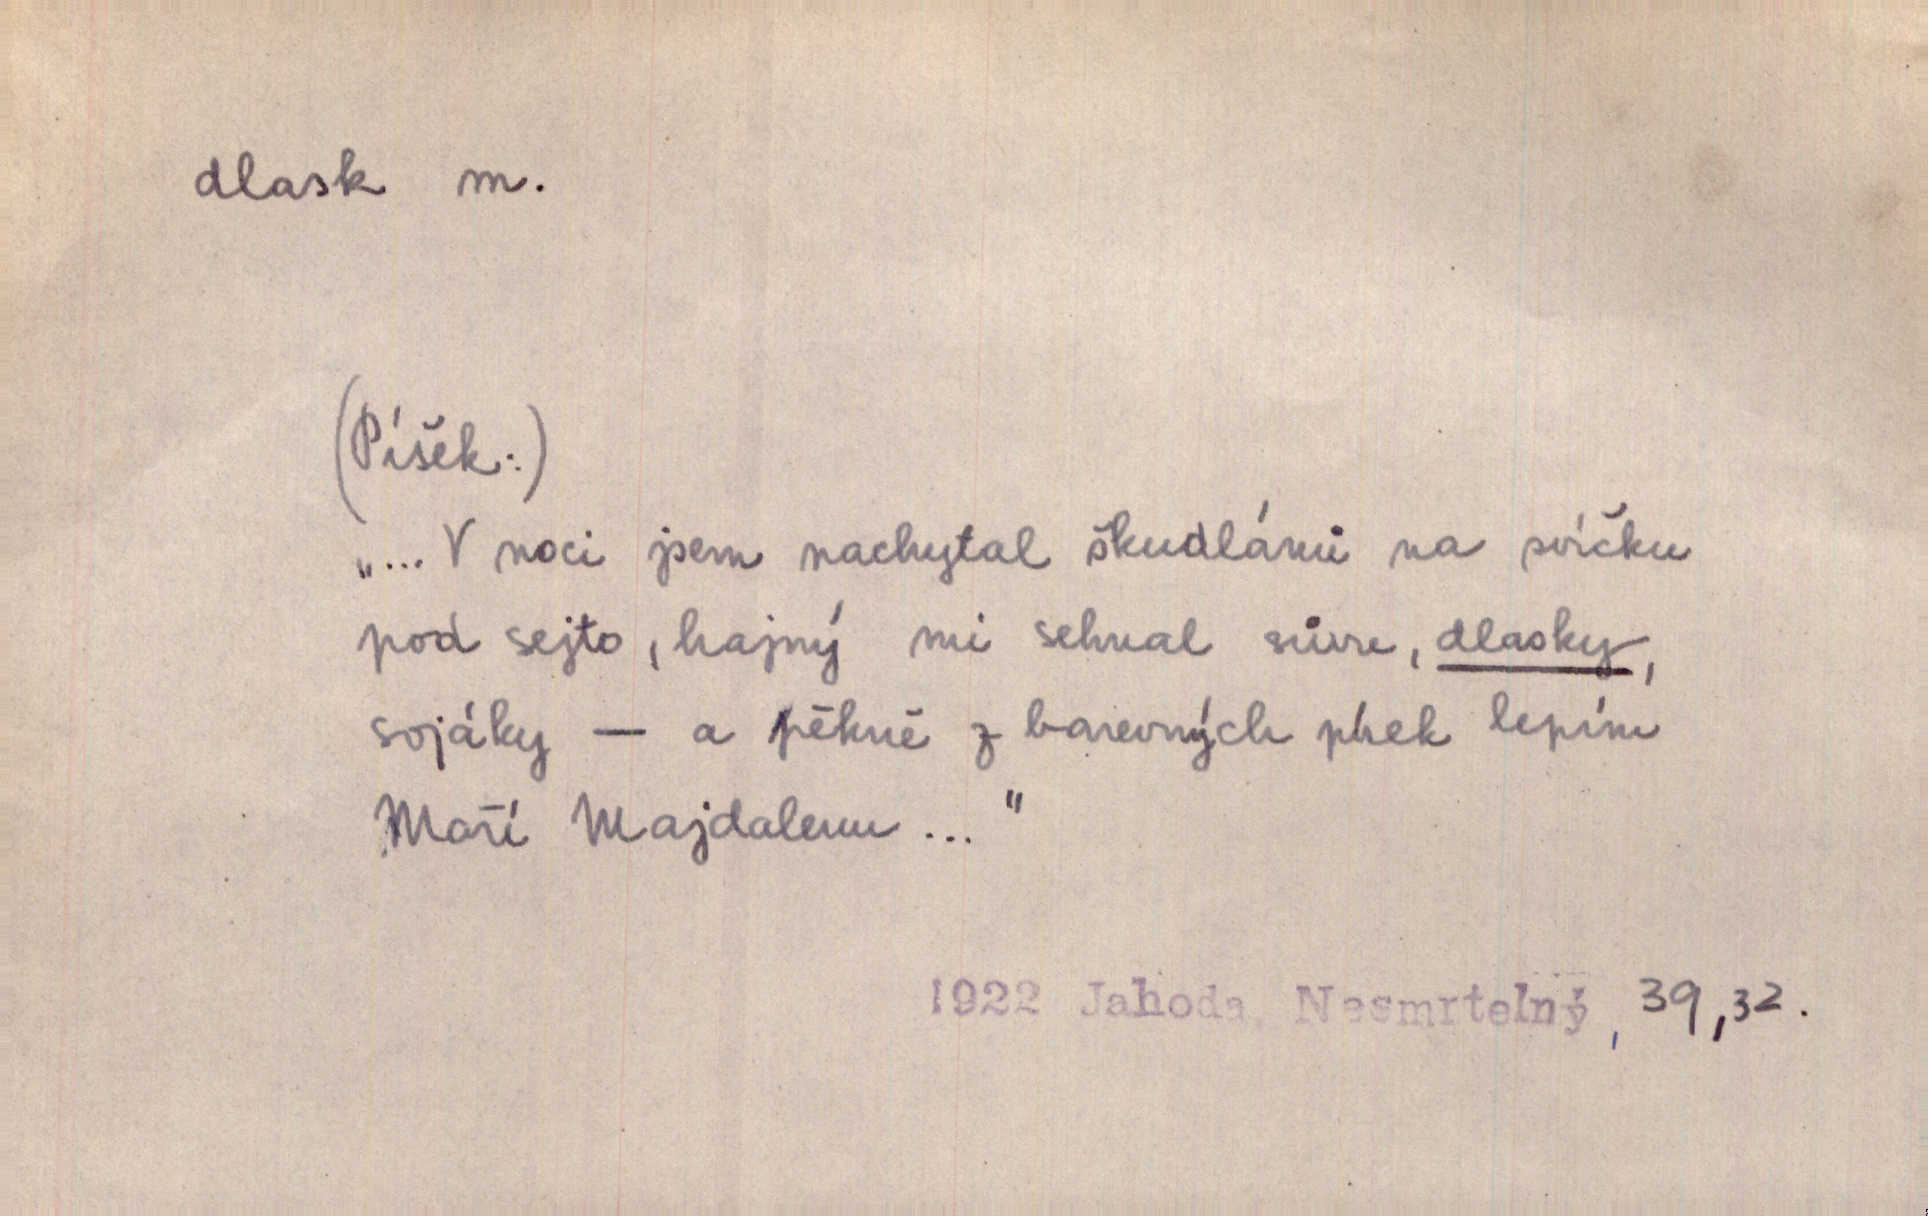 dlask m.
(Píšek:)
„... V noci jsem nachytal škudlánů na svíčku
pod sejto, hajný mi sehnal sůvre, dlasky,
sojáky — a pěkně z barevných pírek lepím
Maří Majdalenu ..."
1922 Jahoda, Nesmrtelný, 39,32.